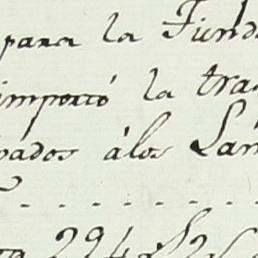 para la Fund
importó la tras
bados álos Lám
294 rs